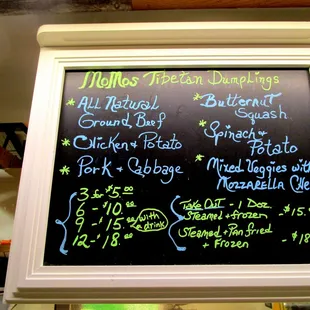 MoMos Tibetan Dumplings
* All Natural
Ground Beef
* Chicken & Potato
* Pork & Cabbage
* Butternut
Squash
* Spinach &
Potato
* Mixed Veggies with
Mozzarella Che
3 for $5.00
6 - $10.00
9 - $15.00
12 - $18.00
with
drink
Take Out - 1 Doz.
Steamed & frozen - $15.
Steamed & Pan fried
& Frozen - $18